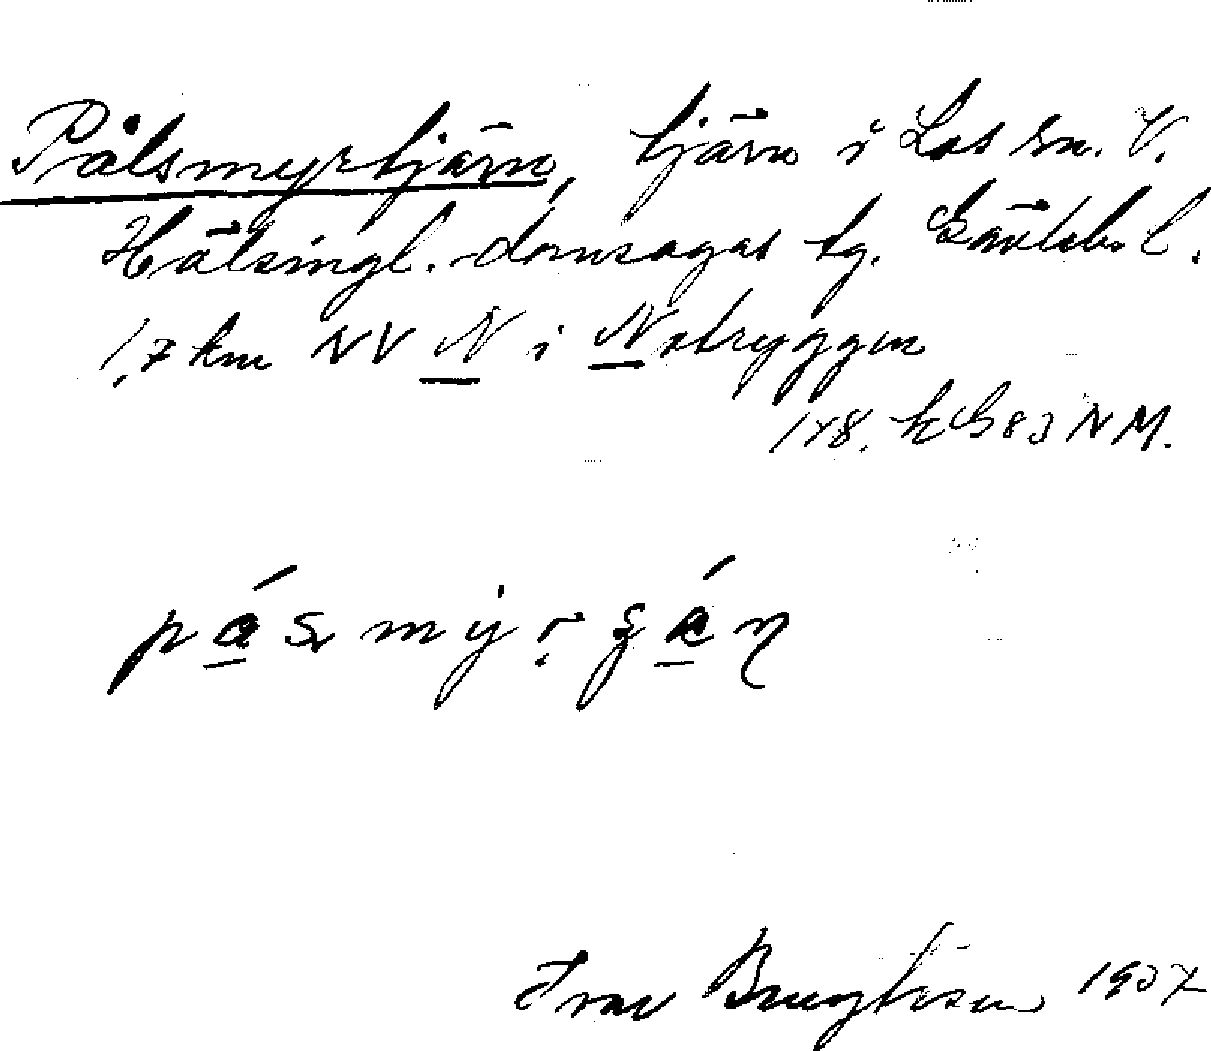 Pålsmyrtjärn, tjärn i Los sn. V.
Hälsingl. domsagas tg. Gävleb. l.
1,7 km NV N i Notryggen
178. k G 83 NM.
Ivar Bengtsson 1937